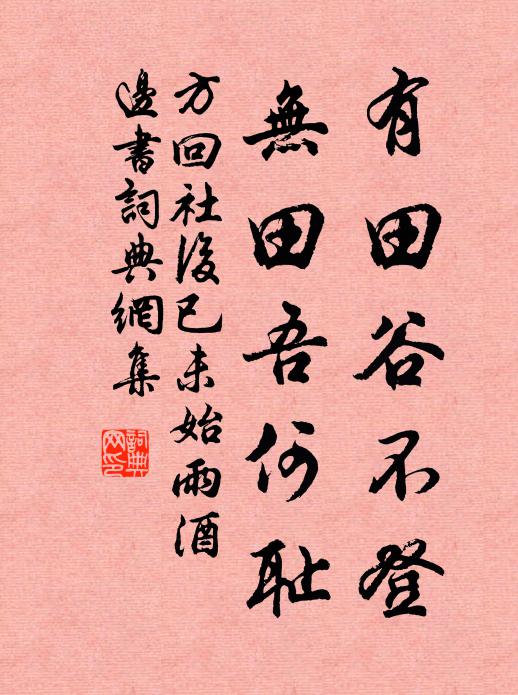 有田谷不登
無田吾何耻
方回社後已未始雨酒
邊書詞典網集
詞典網印